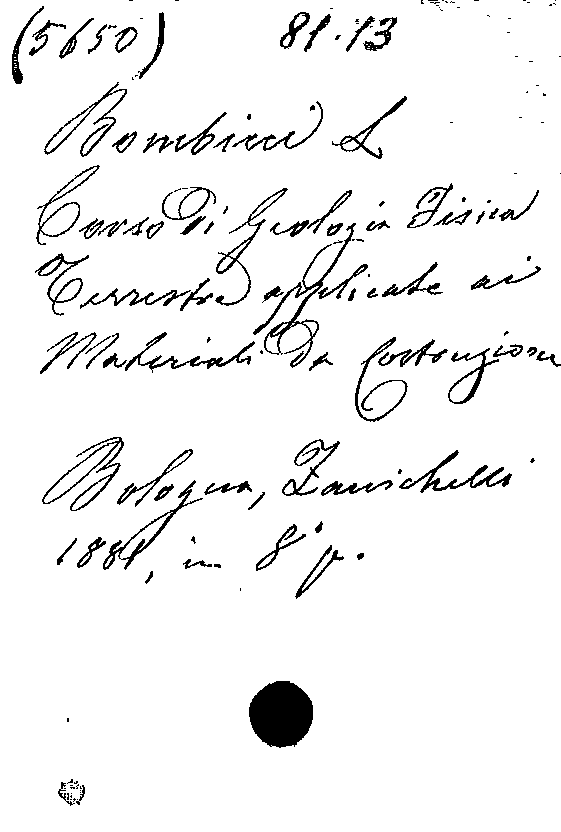 (5650) 81.13
Bombicci L
Corso di Geologia Fisica
Terrestre applicate ai
Materiali da Costruzione
Bologna, Zanichelli
1881, in 8° p.